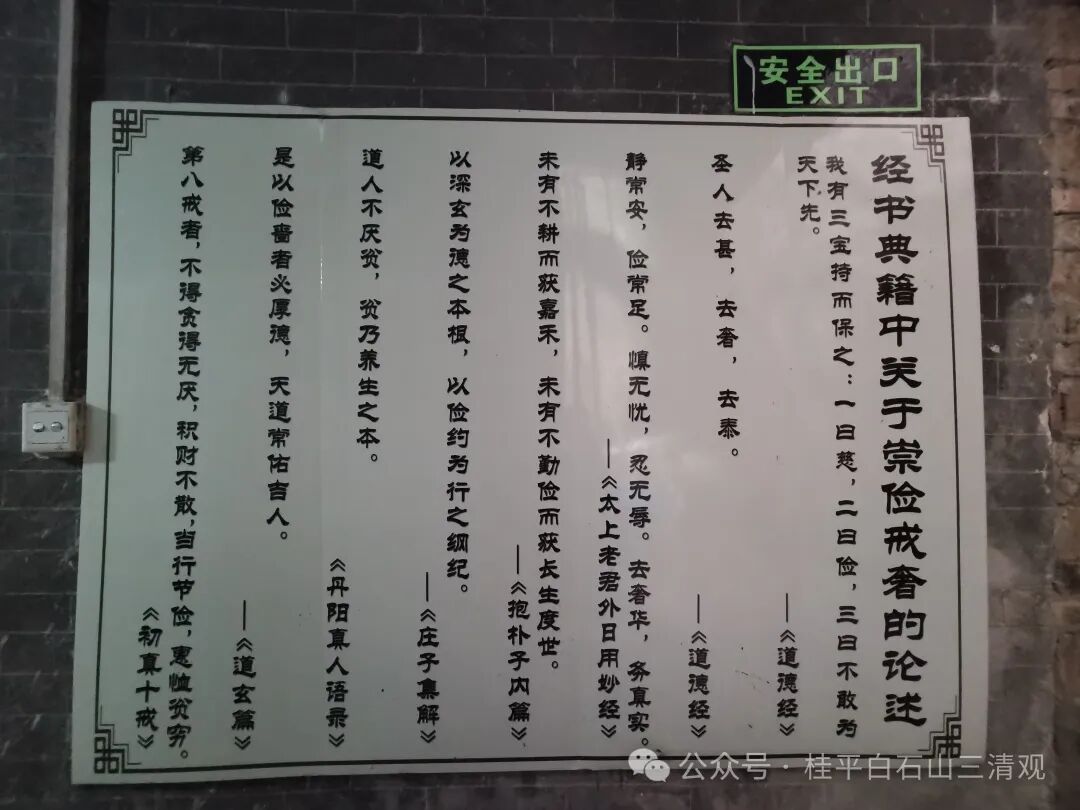 安全出口
EXIT
经书典籍中关于崇俭戒奢的论述
我有三宝持而保之：一曰慈，二曰俭，三曰不敢为
天下先。
——《道德经》
圣人去甚，去奢，去泰。
——《道德经》
静常安，俭常足。慎无忧，忍无辱。去奢华，务真实。
——《太上老君外日用妙经》
未有不耕而获嘉禾，未有不勤俭而获长生度世。
——《抱朴子内篇》
以深玄为德之本根，以俭约为行之纲纪。
——《庄子集解》
道人不厌贫，贫乃养生之本。
《丹阳真人语录》
是以俭啬者必厚德，天道常佑吉人。
——《道玄篇》
第八戒者，不得贪得无厌，积财不散，当行节俭，惠恤贫穷。
《初真十戒》
公众号·桂平白石山三清观